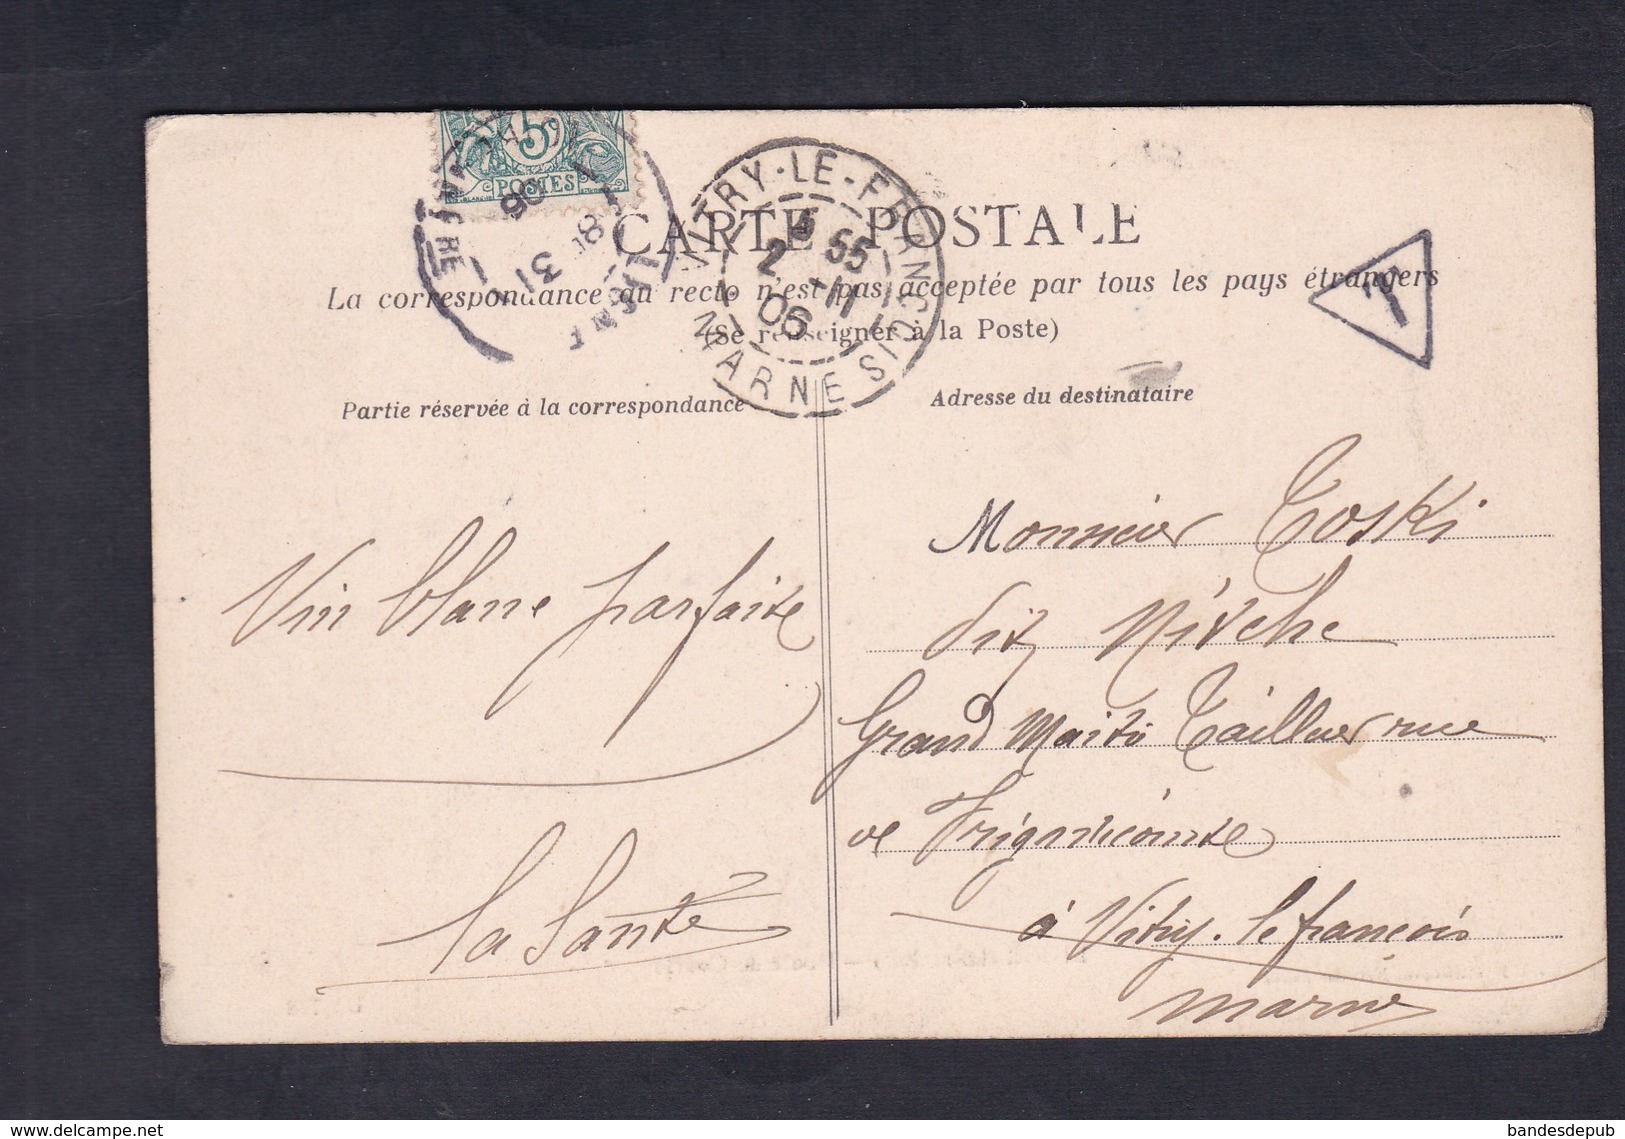 5
POSTES
VITRY-LE-FRANÇOIS
5 55
2 -11
06
MARNE
8 31
06
CARTE POSTALE
La correspondance au recto n'est pas acceptée par tous les pays étrangers
(Se renseigner à la Poste)
T
Partie réservée à la correspondance
Adresse du destinataire
Vin blanc parfaite
la Santé
Monsieur Toski
dit Nivche
Grand Maitre Tailleur rue
de Frignicourt
à Vitry-le françois
Marne
www.delcampe.net
bandesdepub